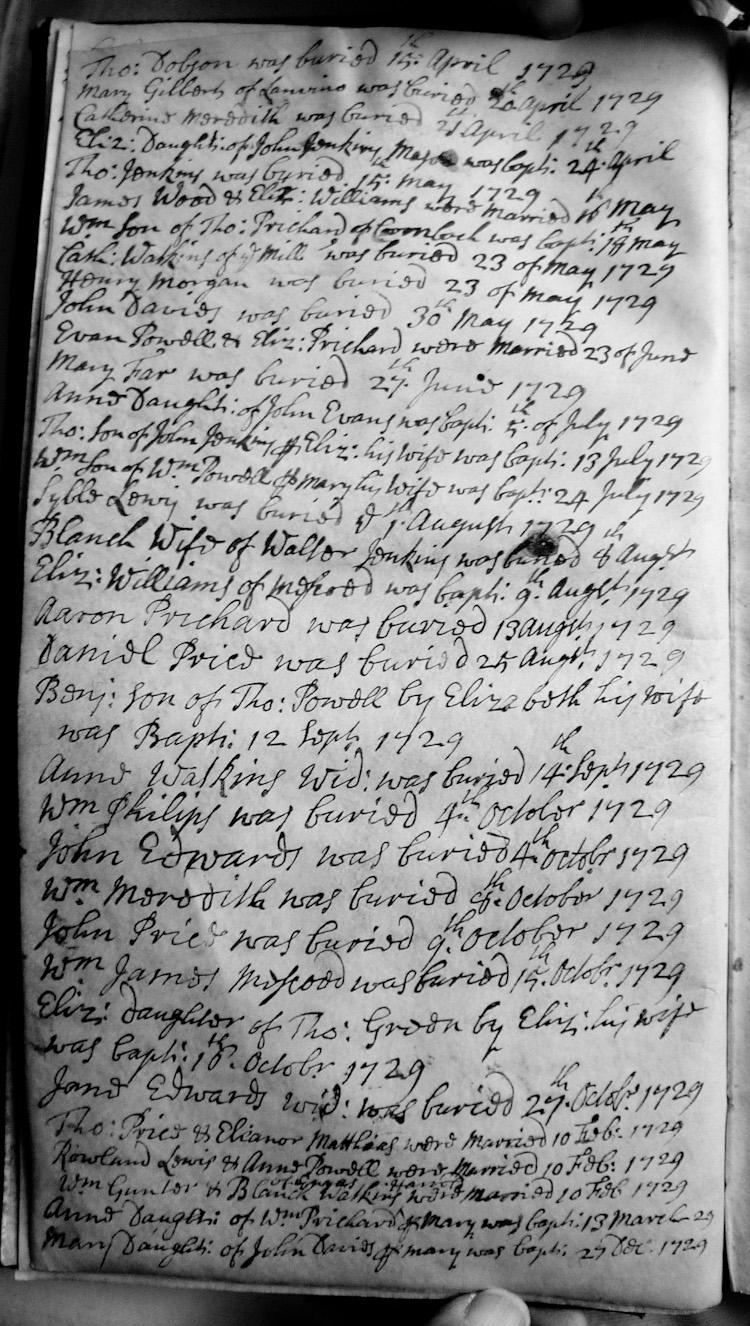 Tho: Dobson was buried 15th: April 1729
Mary Gillert of Lanvino was buried 20th April 1729
Catherine Meredith was buried 21 April 1729
Eliz: Daught: of John Jenkins Mason was bapt: 24th April
Tho: Jenkins was buried 15th: May 1729
James Wood & Eliz: Williams were Married 16th May
Wm Son of Tho: Prichard of was bapt: 18th May
Cath: Watkins of ye Mill was buried 23 of May 1729
Henry Morgan was buried 23 of May 1729
John Davies was buried 30th May 1729
Evan Powell & Eliz: Prichard were Married 23 of June
Mary Far was buried 27th. June 1729
Anne Daught: of John Evans was bapt: 5th: of July 1729
Tho: Son of John Jenkins p Eliz: his wife was bapt: 13 July 1729
Wm Son of Wm Powell p Mary his wife was bapt: 24 July 1729
Syble Lewis was buried 1th August 1729
Blanch Wife of Walter Jenkins was buried 8th Augst
Eliz: Williams of was bapt: 9th: Augst 1729
Aaron Prichard was buried 13 Augst 1729
Daniel Price was buried 25 Augst: 1729
Benj: Son of Tho: Powell by Elizabeth his wife
was Bapt: 12 Sept 1729
Anne Watkins Wid: was buried 14th: Sept 1729
Wm Philips was buried 4th: October 1729
John Edwards was buried 4th: Octobr 1729
Wm Meredith was buried October 1729
John Price was buried 9th: October 1729
Wm James was buried 15th: Octobr. 1729
Eliz: Daughter of Tho: Green by Eliz: his wife
was bapt: 16th. Octobr 1729
Jane Edwards wid: was buried 27th. Octobr. 1729
Tho: Price & Elianor Matthias were Married 10 Feb: 1729
Rowland Lewis & Anne Powell were Married 10 Feb: 1729
Wm Gunter & Blanch Watkins were Married 10 Feb 1729
Anne Daught: of Wm Prichard p Mary was bapt: 13 March 29
Mary Daught: of John Davies p mary was bapt: 27 Dec. 1729